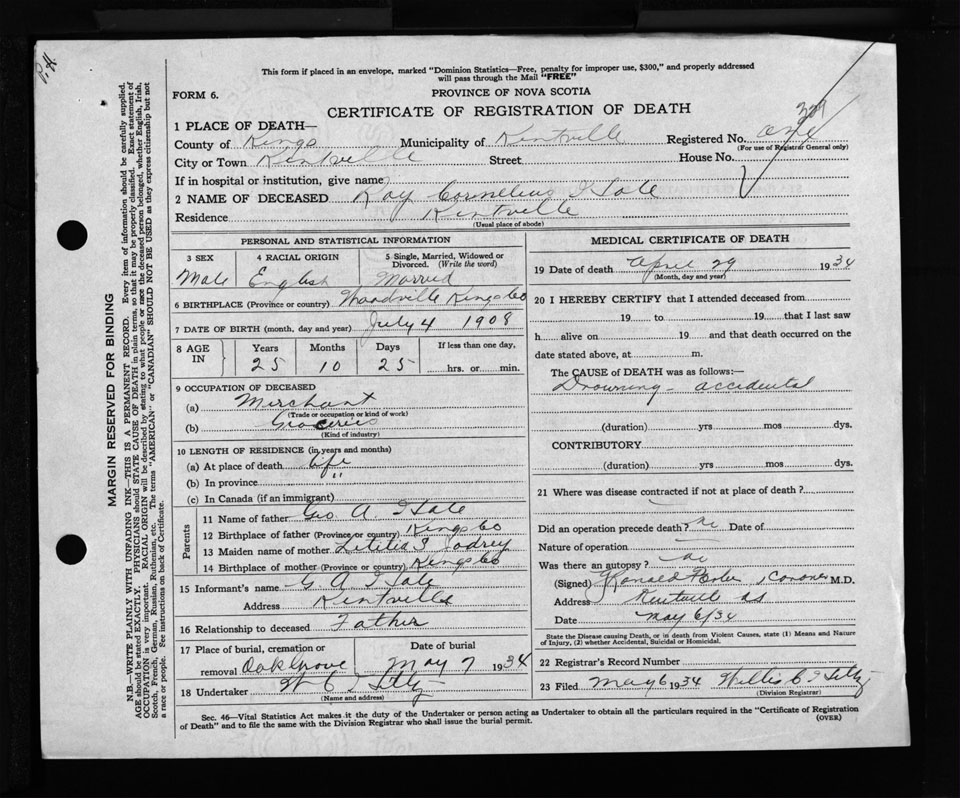 P. H
This form if placed in an envelope, marked "Dominion Statistics—Free, penalty for improper use, $300," and properly addressed
will pass through the Mail "FREE"
FORM 6.
PROVINCE OF NOVA SCOTIA
CERTIFICATE OF REGISTRATION OF DEATH
1 PLACE OF DEATH—
County of Kings Municipality of Kentville Registered No. one
(For use of Registrar General only)
City or Town Kentville Street House No.
If in hospital or institution, give name
2 NAME OF DECEASED Roy Cornelius
Residence Kentville
(Usual place of abode)
PERSONAL AND STATISTICAL INFORMATION
3 SEX 4 RACIAL ORIGIN 5 Single, Married, Widowed or
Divorced. (Write the word)
Male English Married
6 BIRTHPLACE (Province or country) Woodville Kings Co
7 DATE OF BIRTH (month, day and year) July 4 1908
8 AGE IN Years Months Days If less than one day,
25 10 25 hrs. or min.
9 OCCUPATION OF DECEASED
(a) Merchant
(Trade or occupation or kind of work)
(b) Groceries
(Kind of industry)
10 LENGTH OF RESIDENCE (in years and months)
(a) At place of death life
(b) In province "
(c) In Canada (if an immigrant)
Parents
11 Name of father Geo. A.
12 Birthplace of father (Province or country) Kings Co
13 Maiden name of mother Letitia
14 Birthplace of mother (Province or country) Kings Co
15 Informant's name G. A.
Address Kentville
16 Relationship to deceased Father
17 Place of burial, cremation or
removal Oak Grove May 7 1934
18 Undertaker W C
(Name and address)
MEDICAL CERTIFICATE OF DEATH
19 Date of death April 29 1934
(Month, day and year)
20 I HEREBY CERTIFY that I attended deceased from
19 to 19 that I last saw
h alive on 19 and that death occurred on the
date stated above, at m.
The CAUSE of DEATH was as follows:—
Drowning - accidental
(duration) yrs mos dys.
CONTRIBUTORY
(duration) yrs mos dys.
21 Where was disease contracted if not at place of death?
Did an operation precede death? no Date of
Nature of operation
Was there an autopsy? no
(Signed) Coroner M.D.
Address Kentville NS
Date May 6/34
State the Disease causing Death, or in death from Violent Causes, state (1) Means and Nature
of Injury, (2) whether Accidental, Suicidal or Homicidal.
22 Registrar's Record Number
23 Filed May 6 1934 Willis C
(Division Registrar)
Sec. 46—Vital Statistics Act makes it the duty of the Undertaker or person acting as Undertaker to obtain all the particulars required in the "Certificate of Registration
of Death" and to file the same with the Division Registrar who shall issue the burial permit. (OVER)
MARGIN RESERVED FOR BINDING
N.B.—WRITE PLAINLY WITH UNFADING INK—THIS IS A PERMANENT RECORD. Every item of information should be carefully supplied.
AGE should be stated EXACTLY. PHYSICIANS should STATE CAUSE OF DEATH in plain terms, so that it may be properly classified. Exact statement of
OCCUPATION is very important. RACIAL ORIGIN will be described by stating to what people or race the deceased person belonged, whether English, Irish,
Scotch, French, German, Russian, Ruthenian, etc. The terms "AMERICAN" or "CANADIAN" SHOULD NOT BE USED as they express citizenship but not
a race or people. See instructions on back of Certificate.